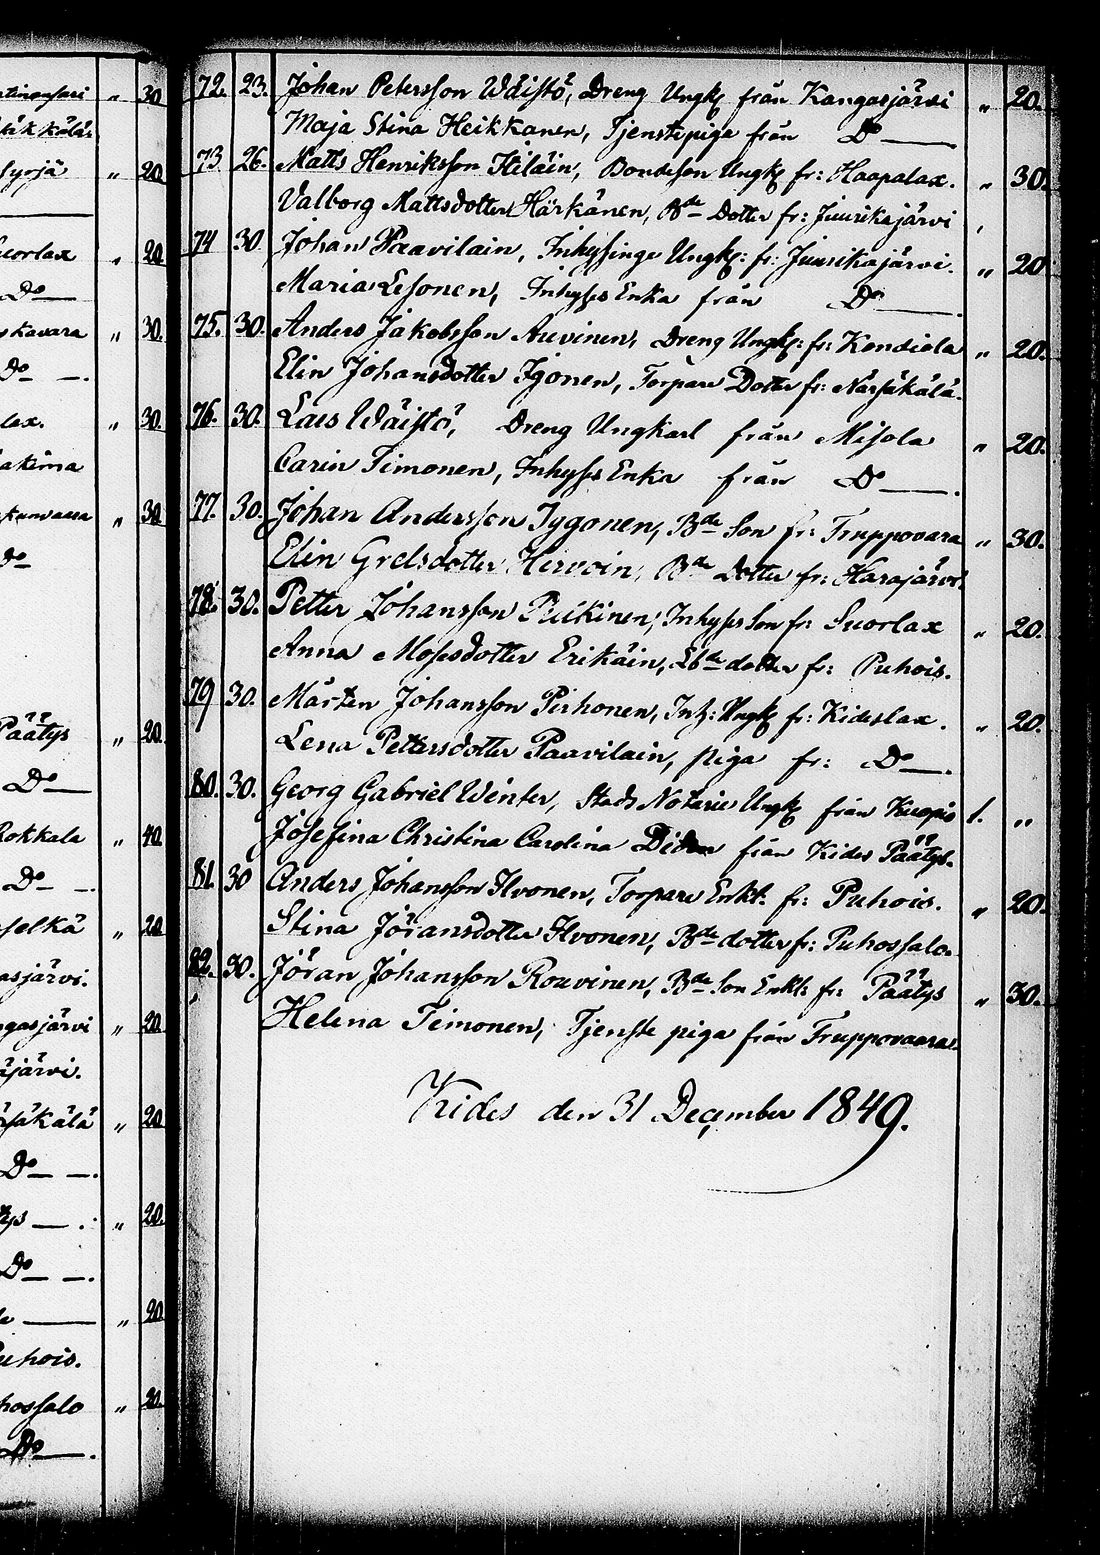 tinonsari „ 30.
kkälä
Syrjä „ 20.
Suorlax „ 20.
Do —
skavara „ 30.
Do — .
lax. „ 30.
akima
„ 30.
Do
Päätys „ 20.
Do —
Rokkala „ 40.
Do — .
selkä „ 20.
asjärvi.
ngasjärvi „ 20.
äjärvi.
säkälä „ 20.
Do — .
tys — . „ 20.
Do — .
— „ 20.
Puhois.
hossalo „ 20.
Do — .
72. 23. Johan Petersson Wäistö, Dreng Ungk från Kangasjärvi „ 20.
Maja Stina Heikkanen, Tjenstepiga från Do — .
73 26. Matts Henriksson Kiläin, Bondeson Ungk fr: Haapalax. „ 30.
Valborg Mattsdotter Härkänen, Bde Dotter fr: Juurikajärvi
74 30. Johan Paavilain, Inhysinge Ungk: fr: Juurikajärvi. „ 20
Maria Lesonen, Inhyses Enka från Do — .
75. 30. Anders Jakobsson Auvinen, Dreng Ungk: fr: Kondiola „ 20.
Elin Johansdotter Igonen, Torpare Dotter fr: Närsäkälä.
76. 30. Lars Wäistö, Dreng Ungkarl från Misola „ 20.
Carin Timonen, Inhyses Enka från Do — .
77. 30. Johan Andersson Tygonen, Bde Son fr: Fruppovara „ 30.
Elin Grelsdotter Hirvoin, Bde Dotter fr: Harajärvi.
78. 30. Petter Johansson Pulkinen, Inhyses Son fr: Suorlax „ 20.
Anna Mosesdotter Erikäin, Lbde dotter fr: Puhois.
79 30. Mårten Johansson Pirhonen, Inh: Ungk fr: Kideslax. „ 20.
Lena Pettersdotter Paavilain, piga fr: Do — .
80. 30. Georg Gabriel Winter, Stads Notarie Ungk från Kuopio 1. „
Josefina Christina Carolina från Kides Päätys.
81. 30 Anders Johansson Ilvonen, Torpare Enkl: fr: Puhois. „ 20.
Stina Jöransdotter Ilvonen, Bde dotter fr: Puhossalo.
82. 30. Jöran Johansson Rouvinen, Bde Son Enkl: fr: Päätys „ 30.
Helena Timonen, Tjenste piga från Fruppovaara.
Kides den 31 December 1849.